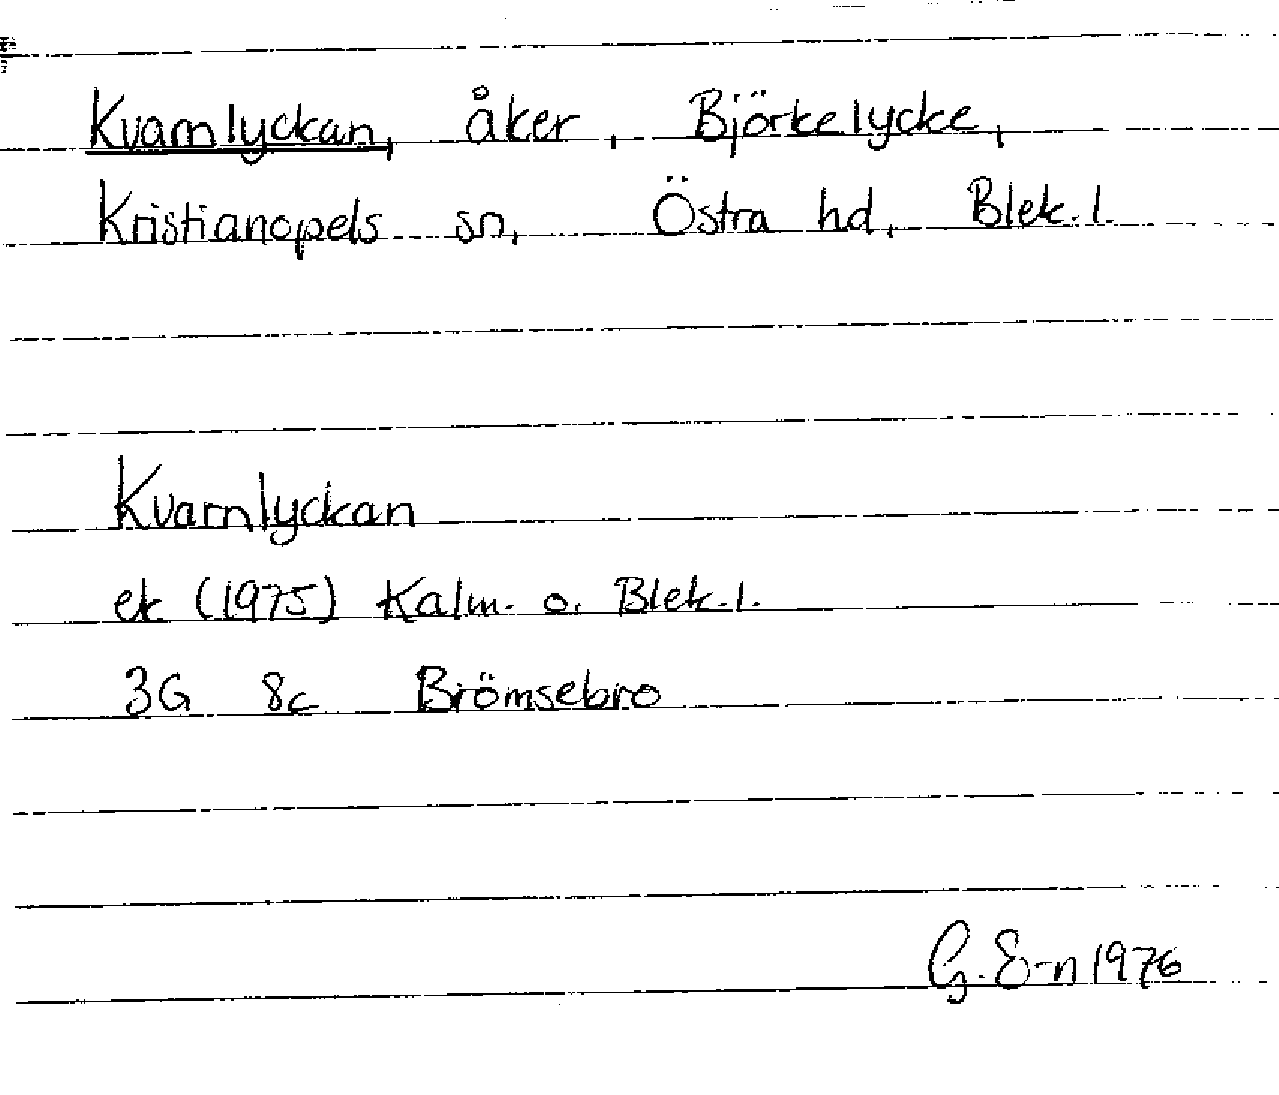 Kvarnlyckan, åker, Björkelycke,
Kristianopels sn, Östra hd, Blek. l.
Kvarnlyckan
ek (1975) Kalm. o. Blek. l.
3G 8c Brömsebro
G. E-n 1976